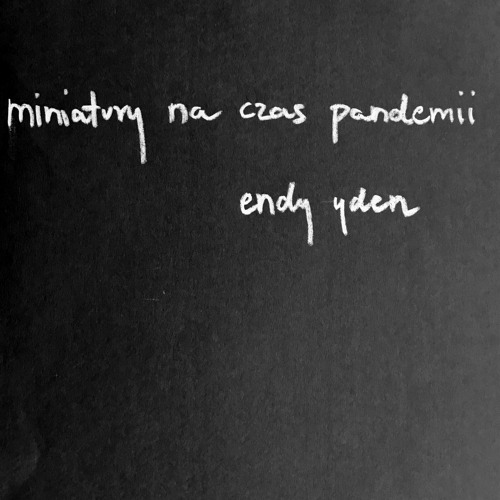 miniatury na czas pandemii
endy yden